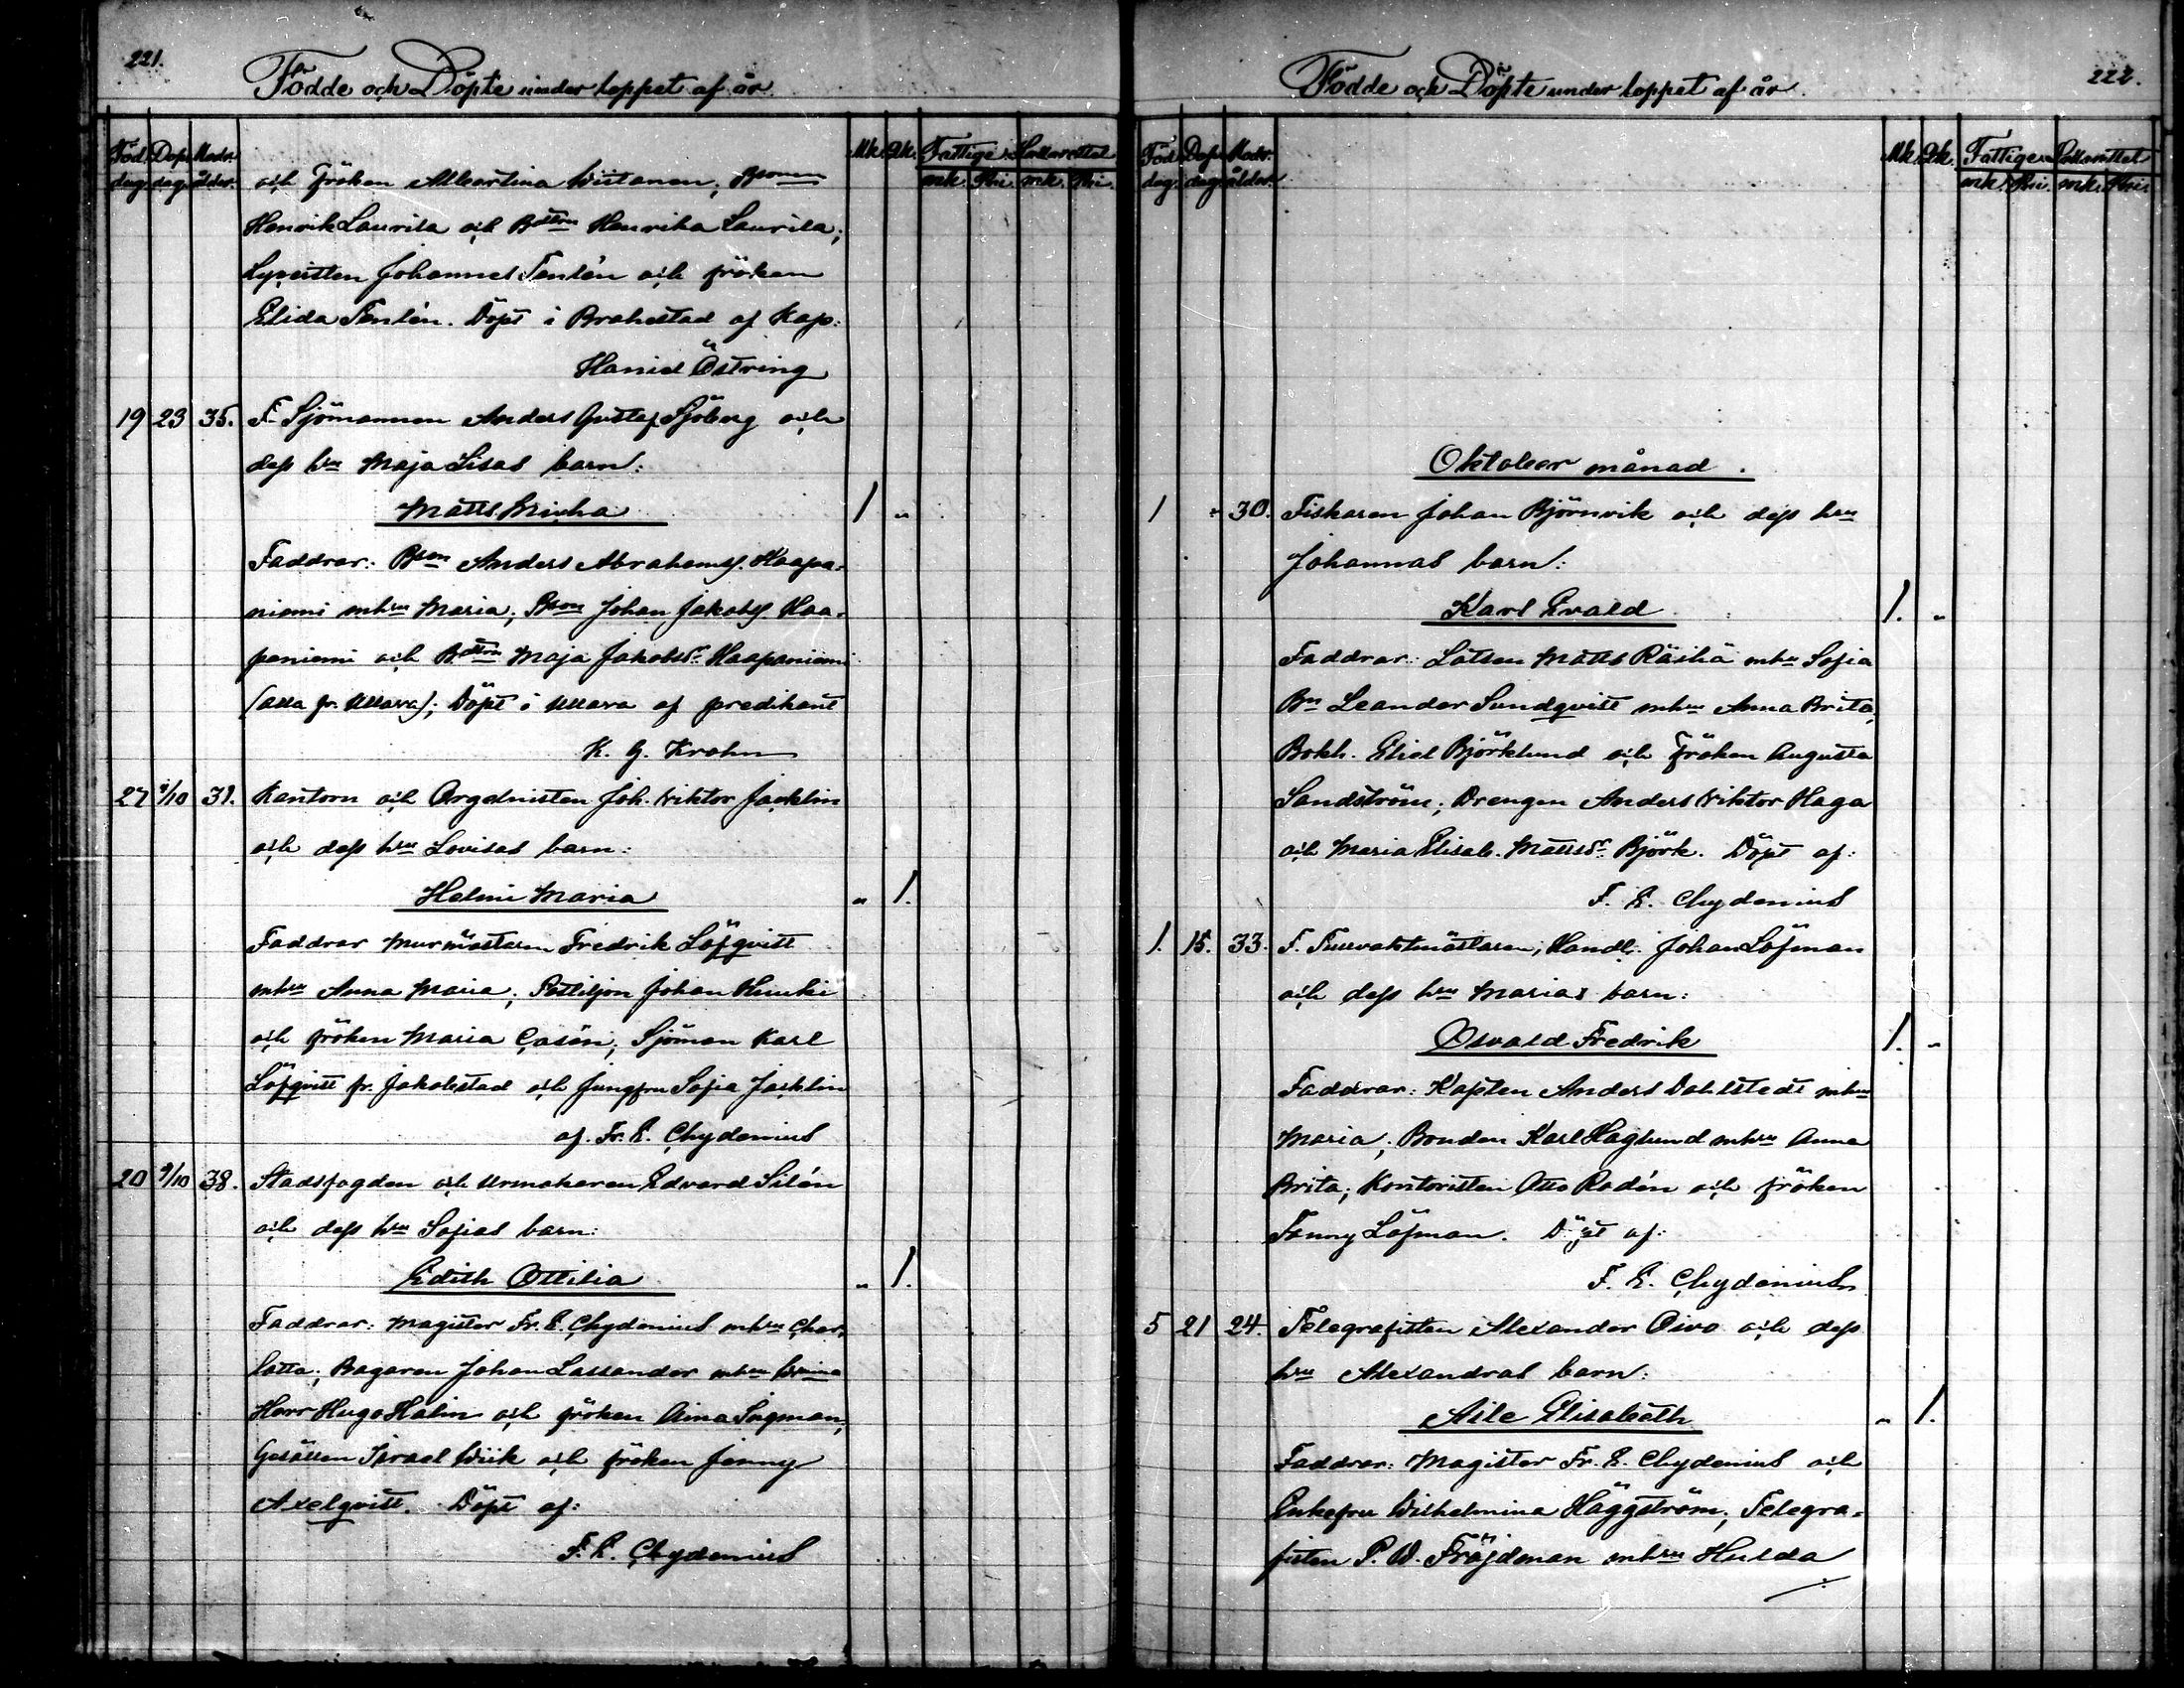 221.
Födde och Döpte under loppet af år
Föd. Dop. Modr. Mk. Qk. Fattige
dag. dag. ålder. mk. Pni. mk. Pni.
och fröken Albertina Wiitanen; Bsonen
Henrik Laurila och Bdttrn Henrika Laurila;
Lyceisten Johannes Tenlén och fröken
Elida Tenlén. Döpt i Brahestad af Kap:
Östring
19 23 35. F. Sjömannen Anders Gustaf Sjöberg och
dess hru Maja Lisas barn:
Matts 1 "
Faddrar: Bson Anders Abrahamss. Haapa-
niemi mhru Maria; Bson Johan Jakobss. Haa-
paniemi och Bdttrn Maja Jakobsdr Haapaniemi
(alla fr. Ullava); Döpt i Ullava af predikant
K. G. Krohn
27 4/10 31. Kantorn och Orgelnisten Joh. Viktor Jacklin
och dess hru Lovisas barn:
Helmi Maria " 1.
Faddrar Murmästaren Fredrik Löfqvist
mhru Anna Maria; Postiljon Johan
och fröken Maria Casén; Sjöman Karl
Löfqvist fr. Jakobstad och Jungfru Sofia Jacklin
af. Fr. E. Chydenius
20 9/10 38. Stadsfogden och Urmakaren Edvard Silén
och dess hru Sofias barn:
Edith Ottilia " 1.
Faddrar: Magister Fr. E. Chydenius mhru Char-
lotta; Bagaren Johan Lassander mhru
Herr Hugo Halin och fröken Aina
Gesällen Israel Wiik och fröken Jenny
Axelqvist. Döpt af:
F. E. Chydenius
222.
Födde och Döpte under loppet af år
Föd. Dop. Modr. Mk. Qk. Fattige
dag. dag. ålder. mk. Pni. mk. Pni.
Oktober månad.
1 " 30. Fiskaren Johan Björnvik och dess hru
Johannas barn:
Karl Evald 1. "
Faddrar: Lotsen Matts Räihä mhru Sofia
Bn Leander Sundqvist mhru Anna Brita,
Bokh. Eliel Björklund och Fröken Augusta
Sandström; Drengen Anders Viktor Haga
och Maria Elisab. Mattsdr Björk. Döpt af:
F. E. Chydenius
1. 15. 33. F. Tullvaktmästaren, Handl. Johan Löfman
och dess hru Marias barn:
Osvald Fredrik 1. "
Faddrar: Kapten Anders Dahlstedt mhru
Maria; Bonden Karl Haglund mhru Anna
Brita; Kontoristen Otto Rodén och fröken
Fanny Löfman. Döpt af:
F. E. Chydenius
5 21 24. Telegrafisten Alexander Oivo och dess
hru Alexandras barn:
Aile Elisabeth " 1.
Faddrar: Magister Fr. E. Chydenius och
Enkefru Wilhelmina Häggström; Telegra-
fisten P. W. Fröjdman mhru Hulda